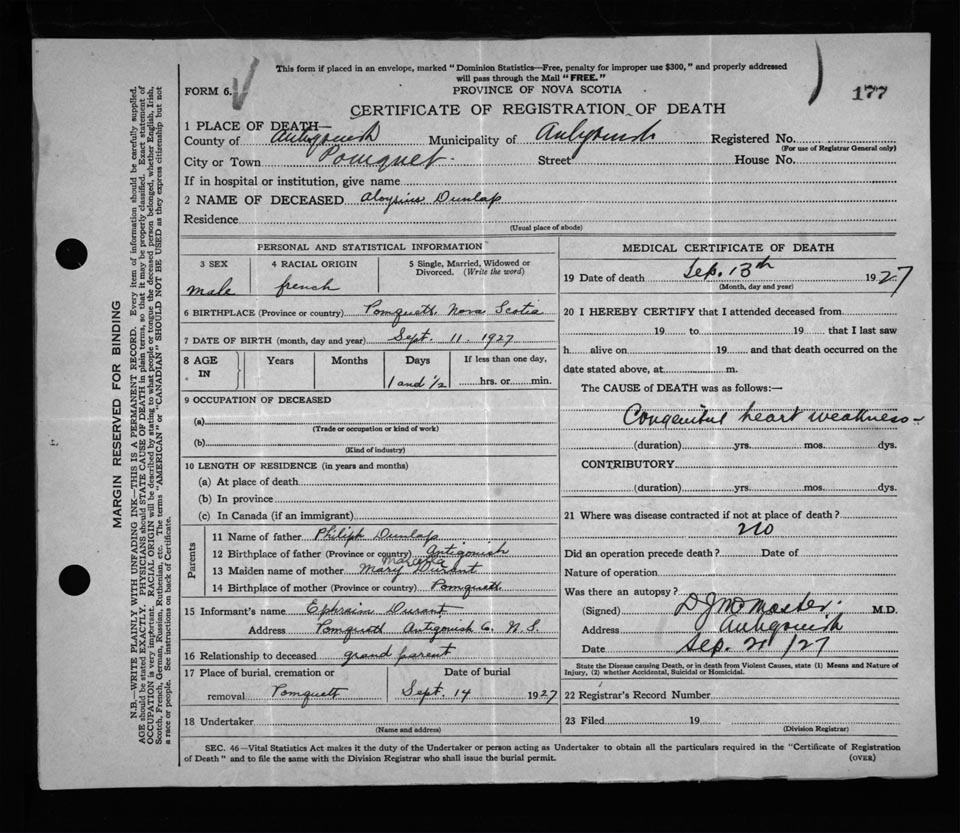 This form if placed in an envelope, marked "Dominion Statistics—Free, penalty for improper use $300," and properly addressed
will pass through the Mail "FREE."
FORM 6. PROVINCE OF NOVA SCOTIA 177
CERTIFICATE OF REGISTRATION OF DEATH
1 PLACE OF DEATH—
County of Antigonish Municipality of Antigonish Registered No.
(For use of Registrar General only)
City or Town Pomquet. Street House No.
If in hospital or institution, give name
2 NAME OF DECEASED Aloysius Dunlap
Residence
(Usual place of abode)
PERSONAL AND STATISTICAL INFORMATION
3 SEX 4 RACIAL ORIGIN 5 Single, Married, Widowed or
Divorced. (Write the word)
male french
6 BIRTHPLACE (Province or country) Pomquett, Nova Scotia
7 DATE OF BIRTH (month, day and year) Sept. 11. 1927
8 AGE IN Years Months Days If less than one day,
1 and ½ hrs. or min.
9 OCCUPATION OF DECEASED
(a)
(Trade or occupation or kind of work)
(b)
(Kind of industry)
10 LENGTH OF RESIDENCE (in years and months)
(a) At place of death
(b) In province
(c) In Canada (if an immigrant)
Parents
11 Name of father Philiph Dunlap
12 Birthplace of father (Province or country) Antigonish
13 Maiden name of mother Mary Durant
14 Birthplace of mother (Province or country) Pomquett
15 Informant's name Ephraim Durant
Address Pomquett Antigonish Co. N.S.
16 Relationship to deceased grand parent
17 Place of burial, cremation or Date of burial
removal Pomquett Sept. 14 1927
18 Undertaker
(Name and address)
MEDICAL CERTIFICATE OF DEATH
19 Date of death Sep. 13th 1927
(Month, day and year)
20 I HEREBY CERTIFY that I attended deceased from
19 to 19 that I last saw
h alive on 19 and that death occurred on the
date stated above, at m.
The CAUSE of DEATH was as follows:—
Congenital heart weakness
(duration) yrs. mos. dys.
CONTRIBUTORY
(duration) yrs. mos. dys.
21 Where was disease contracted if not at place of death?
no
Did an operation precede death? Date of
Nature of operation
Was there an autopsy?
(Signed) D J McMaster. M.D.
Address Antigonish
Date Sep. /27
State the Disease causing Death, or in death from Violent Causes, state (1) Means and Nature of
Injury, (2) whether Accidental, Suicidal or Homicidal.
22 Registrar's Record Number
23 Filed 19
(Division Registrar)
SEC. 46—Vital Statistics Act makes it the duty of the Undertaker or person acting as Undertaker to obtain all the particulars required in the "Certificate of Registration
of Death" and to file the same with the Division Registrar who shall issue the burial permit. (OVER)
MARGIN RESERVED FOR BINDING
N.B.—WRITE PLAINLY WITH UNFADING INK—THIS IS A PERMANENT RECORD. Every item of information should be carefully supplied.
AGE should be stated EXACTLY. PHYSICIANS should STATE CAUSE OF DEATH in plain terms, so that it may be properly classified. Exact statement of
OCCUPATION is very important. RACIAL ORIGIN will be described by stating to what people or tongue the deceased person belonged, whether English, Irish,
Scotch, French, German, Russian, Ruthenian, etc. The terms "AMERICAN" or "CANADIAN" SHOULD NOT BE USED as they express citizenship but not
a race or people. See instructions on back of Certificate.